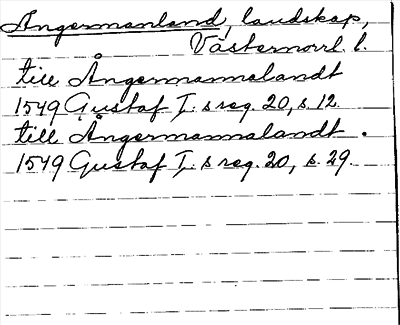 Ångermanland, landskap,
Västernorrl. l.
till Ångermannalandt
1549 Gustaf I:s reg. 20, s. 12.
till Ångermannalandt.
1549 Gustaf I:s reg. 20, s. 29.